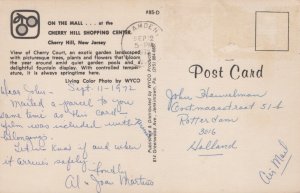 ABS-D
ON THE MALL . . . at the
CHERRY HILL SHOPPING CENTER
Cherry Hill, New Jersey
View of Cherry Court, an exotic garden landscaped
with picturesque trees, plants and flowers that bloom
the year around amid quiet garden pools and a
delightful fountain display. With controlled temper-
ature, it is always springtime here.
Living Color Photo by WYCO
CAMDEN
SEP 12
5 PM
Post Card
Dear John - Sept-11-1972
Mailed a parcel to you
same time as this card -
film was included with
belongings.
Let us know if and when
it arrives safely.
Fondly
Al & Joan Martins
John Heuvelman
51-b
Rotterdam
3016
Holland
Air Mail